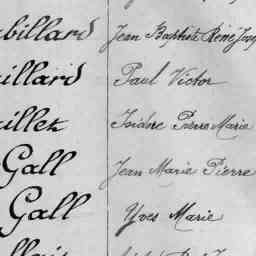 billard Jean Baptiste René
illard Paul Victor
illet Isidore Pierre Marie
Gall Jean Marie Pierre
Gall Yves Marie